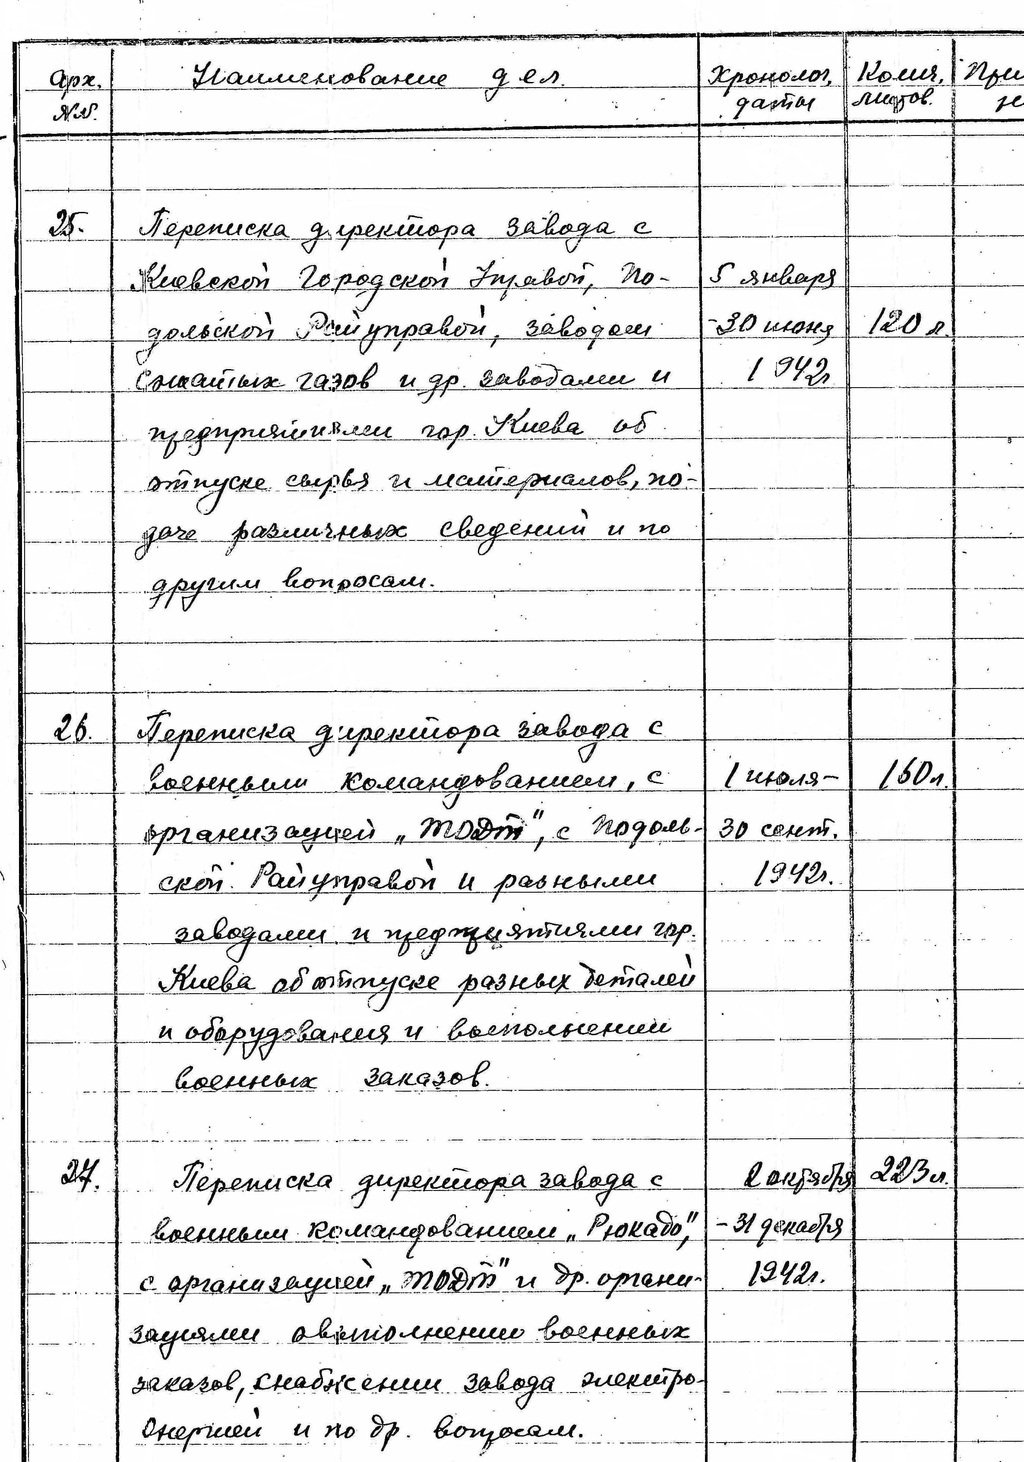 Арх. Наименование дел. Хронолог. Колич. При
№№. даты листов.
25. Переписка директора завода с
Киевской Городской Управой, По- 5 января
дольской Райуправой, заводом -30 июня 120 л.
сжатых газов и др. заводами и 1942г
предприятиями гор. Киева об
отпуске сырья и материалов, по-
даче различных сведений и по
другим вопросам.
26. Переписка директора завода с
военным командованием, с 1 июля- 160 л.
организацией „ТОДТ", с Подоль- 30 сент.
ской Райуправой и разными 1942г.
заводами и предприятиями гор.
Киева об отпуске разных деталей
и оборудования и выполнении
военных заказов.
27. Переписка директора завода с 2 октября 223 л.
военным командованием „Рюкадо", -31 декабря
с организацией „ТОДТ" и др. органи- 1942г.
зациями о выполнении военных
заказов, снабжении завода электро-
энергией и по др. вопросам.